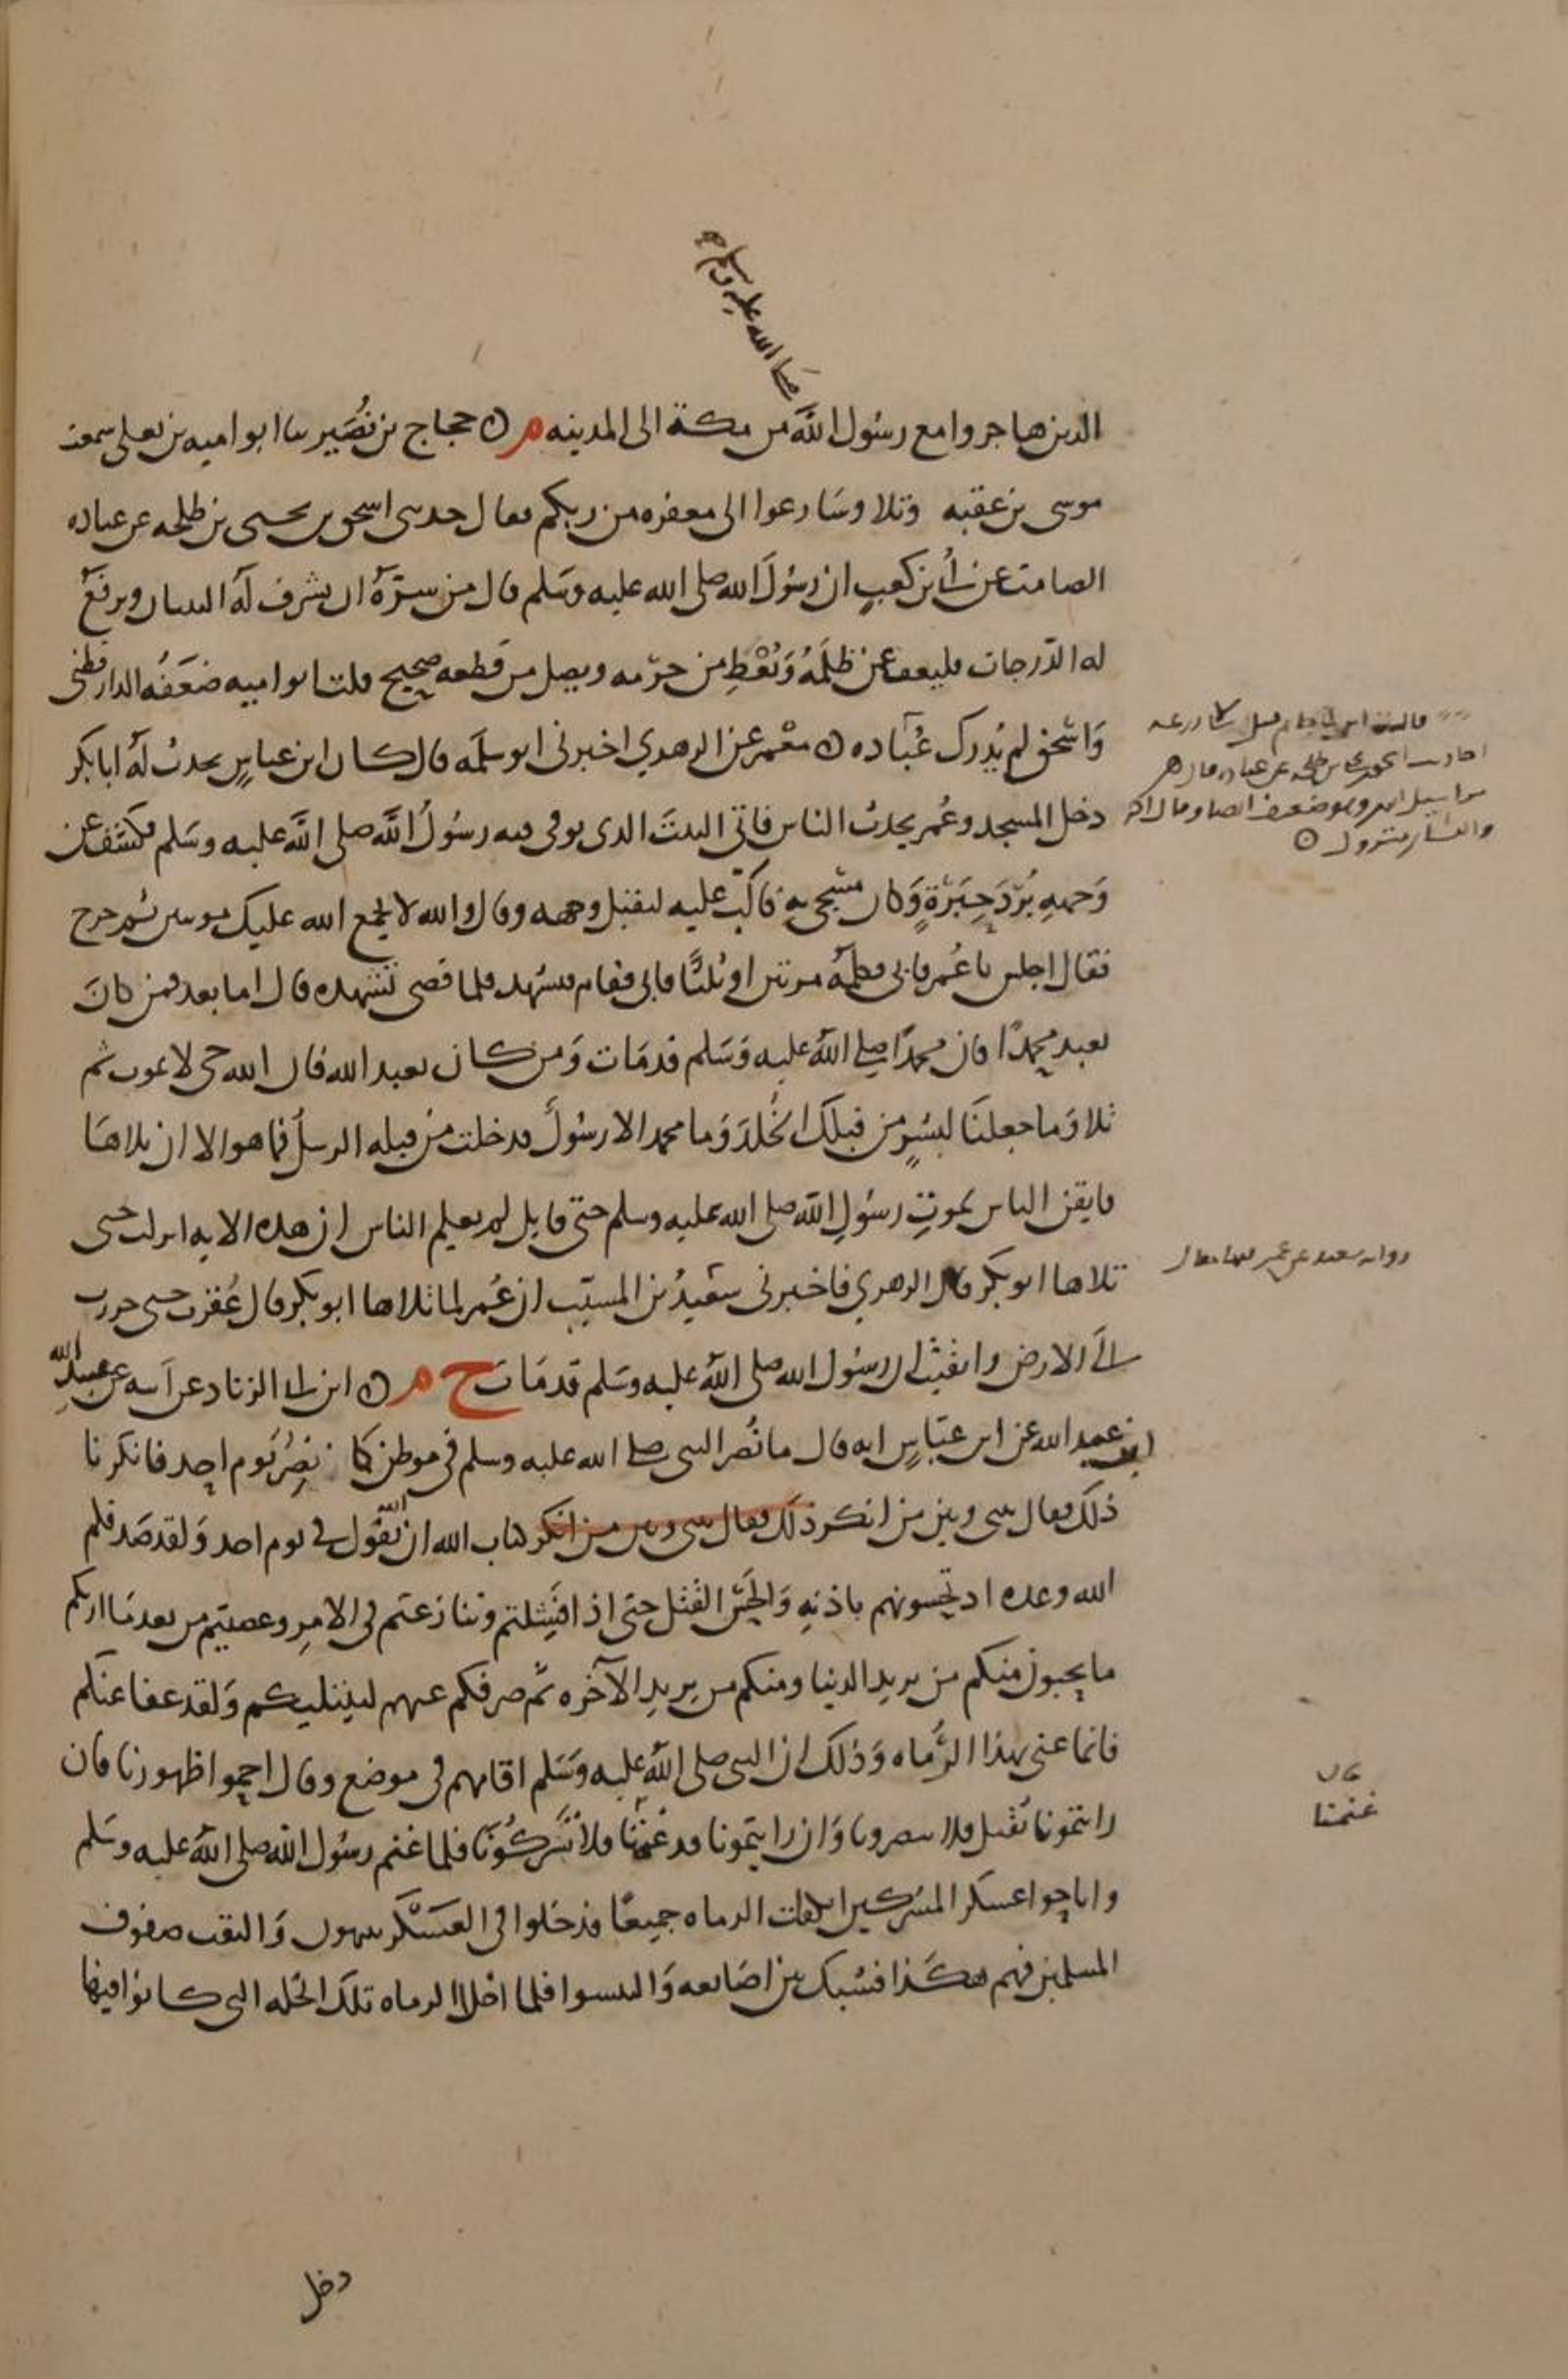 صلى الله عليه وسلم
الذين هاجروا مع رسول الله من مكة الى المدينه م ن حجاج بن نُصَير سا ابو اميه بن يعلى سمعت
موسى بن عقبه وتلا وسَارعوا الى مغفره من ربكم فقال حدثني اسحق بن يحيى بن طلحه عن عباده
الصامت عن أبي بن كعبٍ ان رسُولَ الله صلى الله عليه وسَلم قال من سرّهُ ان يشرف لهُ البنيان ويرفعَ
له الدّرجات فليعف عمن ظلَمَهُ وَيُعْطِ من حرّمه ويصل من قطعه صحيح قلت ابو اميه ضعَفهُ الدارقطني
وَاسْحق لم يُدرك عُبَاده ن معْمر عن الزهري اخبرني ابو سلمَه قال كان ابن عباسٍ يحدث أن ابا بكر
دخل المسجد وعُمر يحدث الناس فاتى البيتَ الذي توفي فيه رسُولُ الله صلى الله عليه وسَلم فكشف عن
وَجههِ بُرْدَ حِبَرَةٍ وَكان مسَجى بهِ فاكبّ عليه ليقبل وجهه وقال والله لا يجمع الله عليك موتتين ثم خرج
فقال اجلس يا عُمر فابى فكلمهُ مرتين او ثلثًا فابى فقام فتشهد فلما قضى تشهده قال اما بعد فمن كانَ
يعبد محمدًا فان محمدًا صلى اللهُ عليه وَسَلم قد مَات وَمن كان يعبد الله فان الله حي لا يموت ثم
تلا وَما جعلنَا لبشرٍ من قبلك الخُلدَ وَما محمد الا رسُولٌ قد خلت من قبله الرسلُ فما هو الا ان تلاهَا
فايقن الناس بموتِ رسُولِ الله صلى الله عليه وسلم حتى قايل لم يعلم الناس ان هذه الايه انزلت حتى
تلاها ابو بكر قال الزهري فاخبرني سَعيدُ بن المسيّب ان عُمر لما تلاها ابو بكر قال عُقرت حتى خررت
الَى الارض وايقنتُ ان رسُول الله صلى اللهُ عليه وسَلم قد مَات خ م ن ابن ابي الزناد عن ابيه عن عبيد الله
ابن عبد الله عن ابن عبّاسٍ انه قال ما نُصر النبي صلى الله عليه وسلم في موطن كما نصِرُ يَوم احد فانكرنا
ذلك فقال بيني وبين من انكر ذلك فقال بيني وبين من انكر كتاب الله ان الله يقول في يوم احد وَلقد صَدقكم
الله وعده اذ تحسونهم باذنهِ وَالحَسّ القَتْل حتى اذا فَشِلتم وتنازعتم في الامرِ وعصيتم من بعد مَا اراكم
ما تحبون منكم من يريد الدنيا ومنكم من يريدِ الآخره ثم صرفكم عنهم ليبتليكم وَلقد عفا عنكم
فانما عنى بهذا الرُّماه وَذلك ان النبي صلى اللهُ عليه وَسَلم اقامهم في موضع وقال احموا ظهورنا فان
رايتمونا نُقْتل فلا تنصرونا وَان رايتمونا قد غنمنَا فلا تَشركُونَا فلما غنم رسُول الله صلى اللهُ عليه وسَلم
واباحوا عسكر المشركين انكفات الرماه جميعًا فدخلوا في العسَكر ينهبون وَالتقت صفوف
المسلمين فهم هكَذا فشبك بين اصَابعه وَالتبسوا فلما اخلا الرماه تلك الخله التي كانوا فيها
دخل
قال ابن ابي حاتم
احاديث اسحق بن يحيى بن طلحه عن عباده
مراسيل
متروك ن
كان
غنمنا